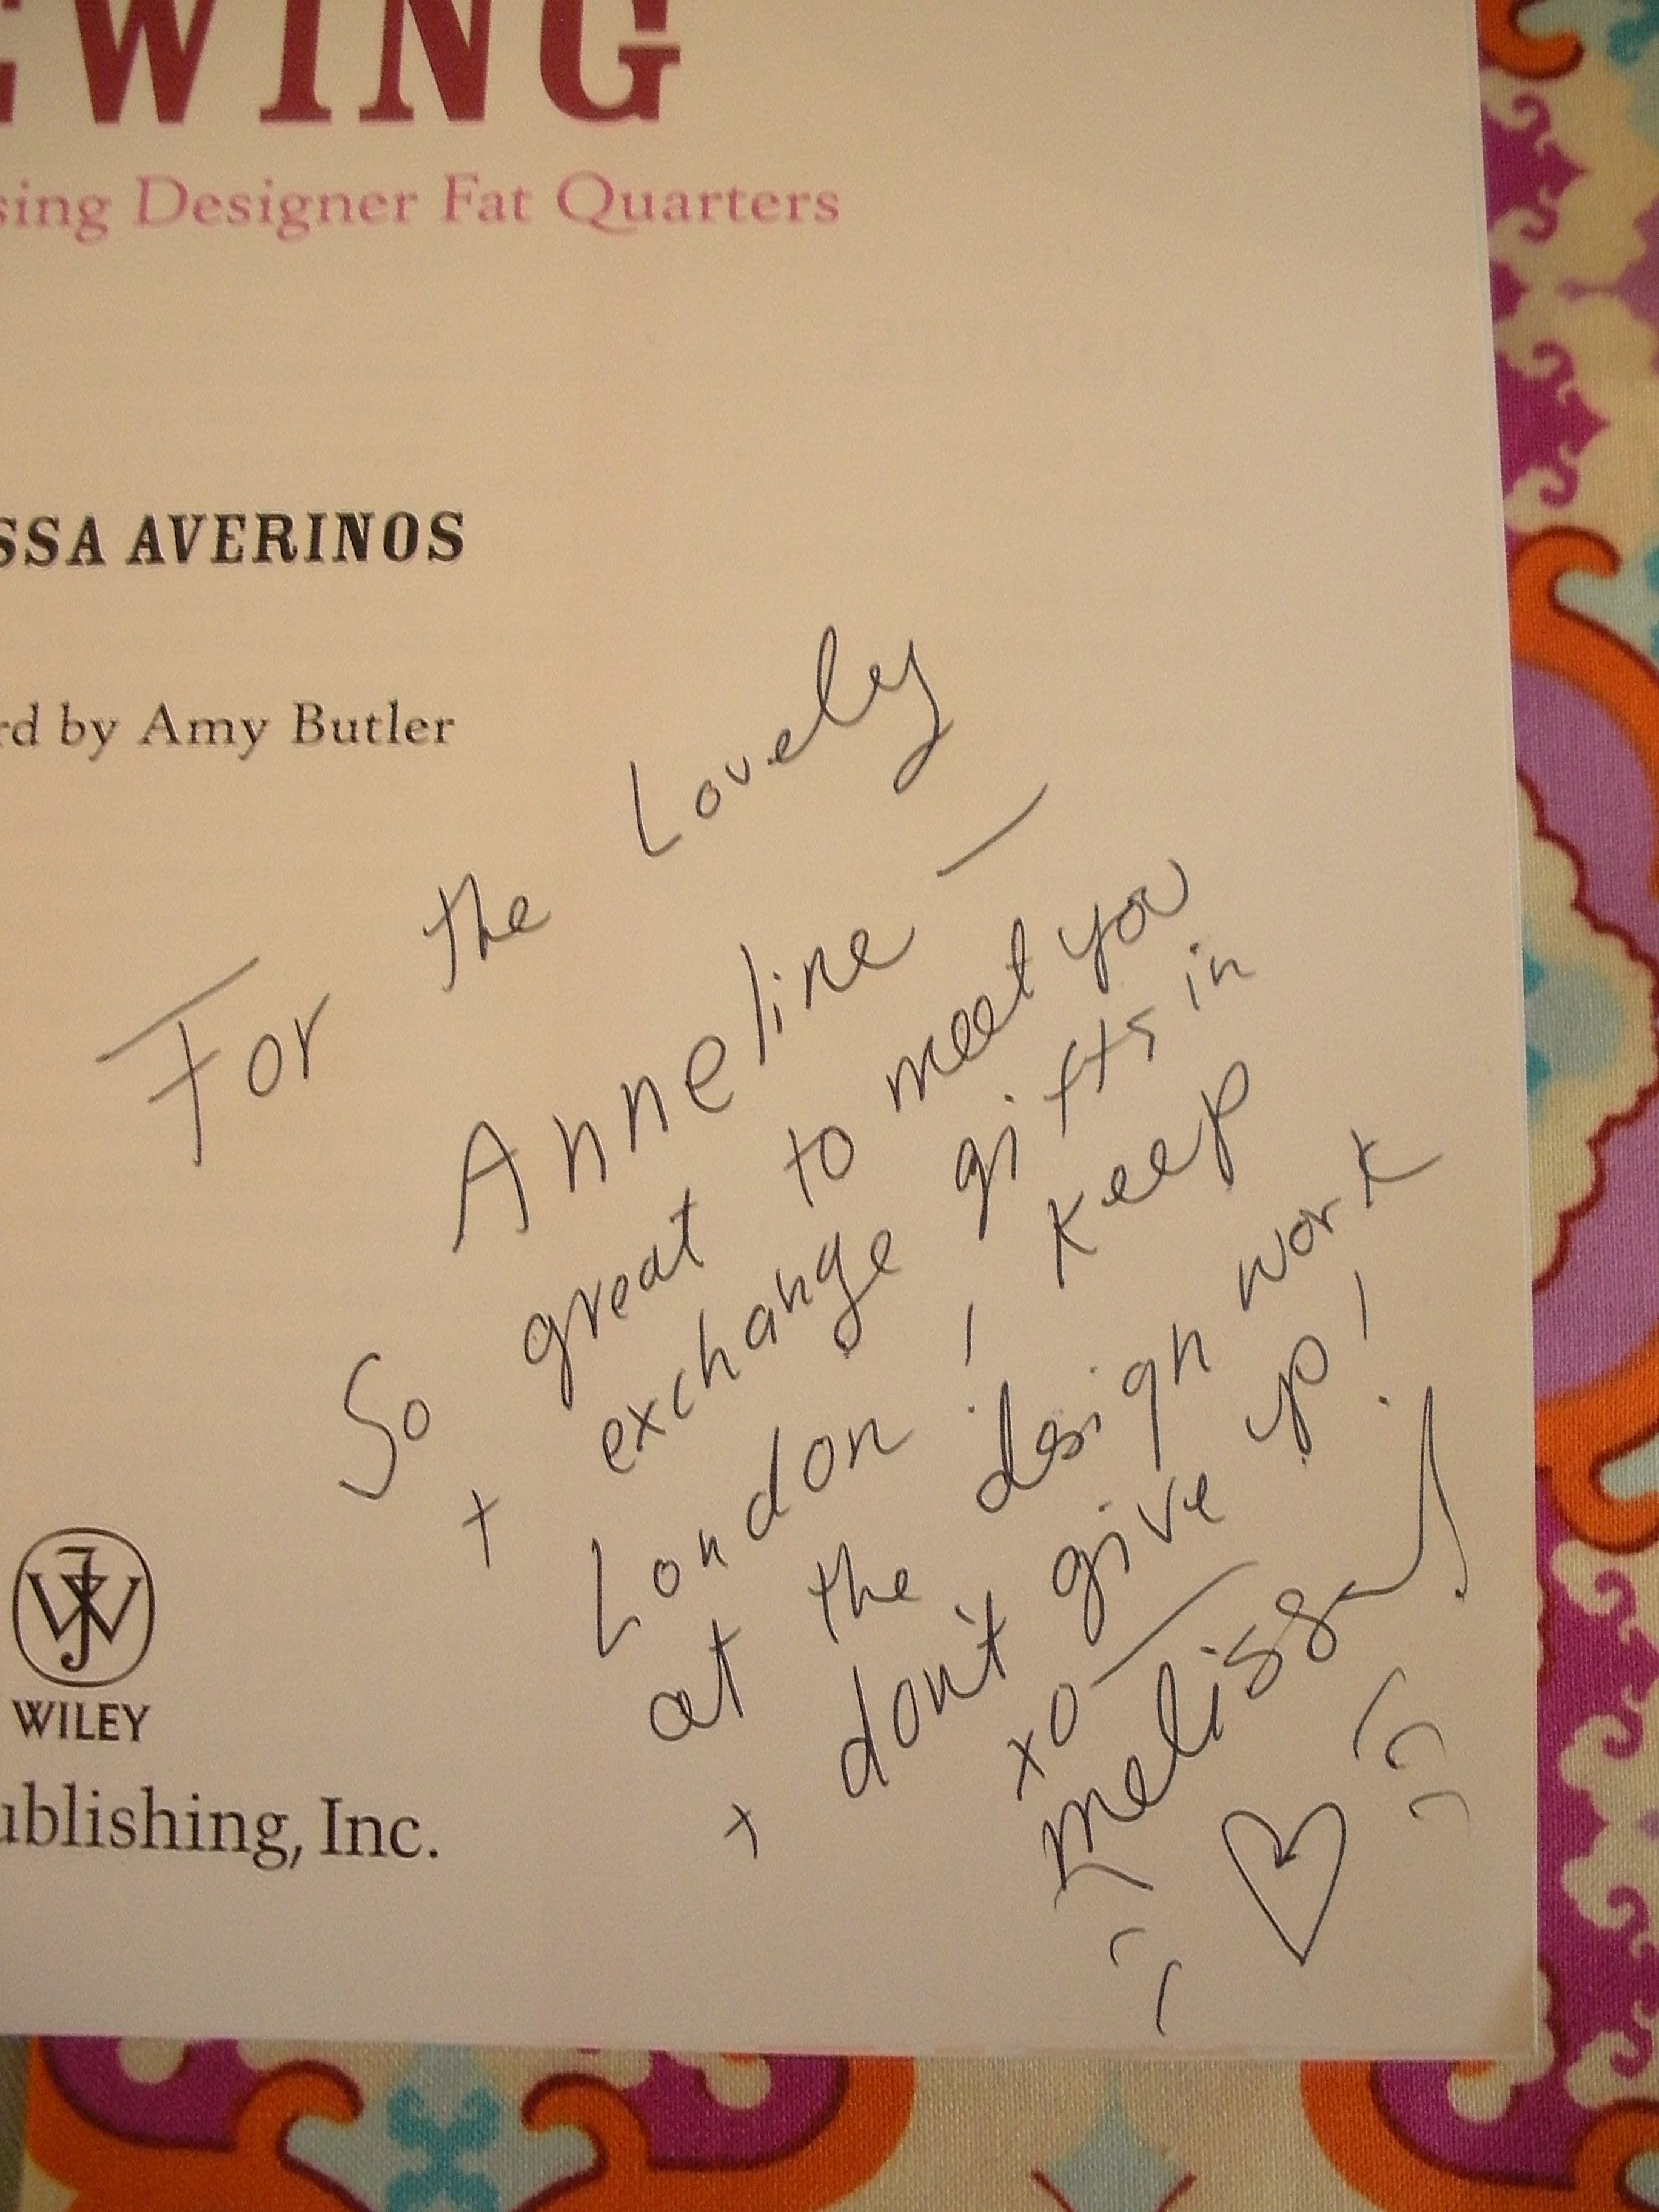 EWING
sing Designer Fat Quarters
SSA AVERINOS
rd by Amy Butler
For the Lovely
Anneline —
So great to meet you
+ exchange gifts in
London! Keep
at the design work
+ don't give up!
xo —
Melissa
WILEY
ublishing, Inc.